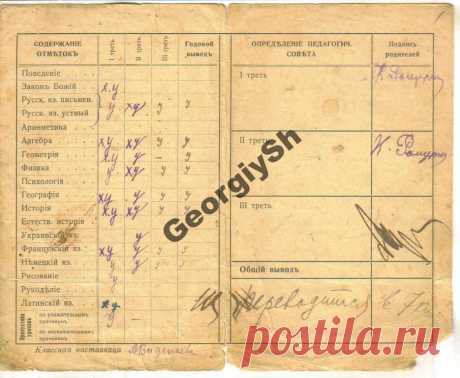 СОДЕРЖАНІЕ ОТМѢТОКЪ
I треть
II треть
III треть
Годовой выводъ
Поведеніе
Законъ Божій х.у
Русск. яз. письмен. у ху у у
Русск. яз. устный
Ариѳметика
Алгебра ху ху у у
Геометрія х.у у - у
Физика у ху у у
Психологія
Географія ху у у у
Исторія х.у ху у у
Естеств. исторія
Украинскій яз. у
Французскій яз. ху у у у
Нѣмецкій яз. у у
Рисованіе у
Рукодѣліе
Латинскій яз. ху
Пропущено уроковъ
по уважительнымъ причинамъ
по неуважительнымъ причинамъ
Классная наставница
ОПРЕДѢЛЕНІЕ ПЕДАГОГИЧ. СОВѢТА
Подпись родителей
I треть
II треть
III треть
Общій выводъ
переводится в
GeorgiySh
posila.ru